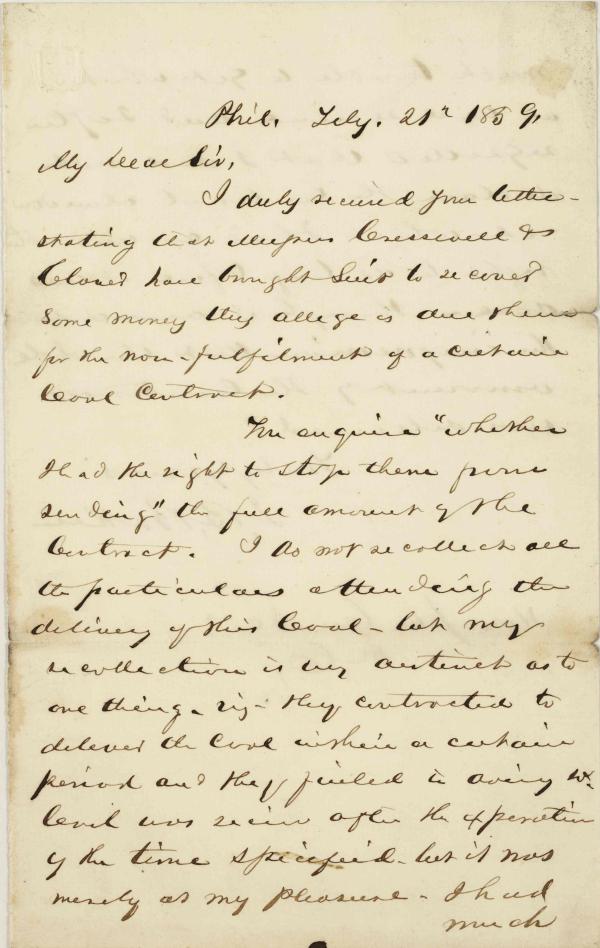 Phil. July. 21st 1859,
My Dear Sir,
I duly received your letter
stating that Messrs Cresswell &
have brought Suit to recover
some money they allege is due them
for the non-fulfilment of a certain
Coal Contract.
You enquire "whether
I had the right to stop them from
sending" the full amount of the
Contract. I do not recollect all
the particulars attending the
delivery of this Coal - but my
recollection is very distinct as to
one thing - viz - they contracted to
deliver the Coal within a certain
period and they failed in doing so.
Coal was received after the expiration
of the time specified - but it was
merely at my pleasure - I had
much